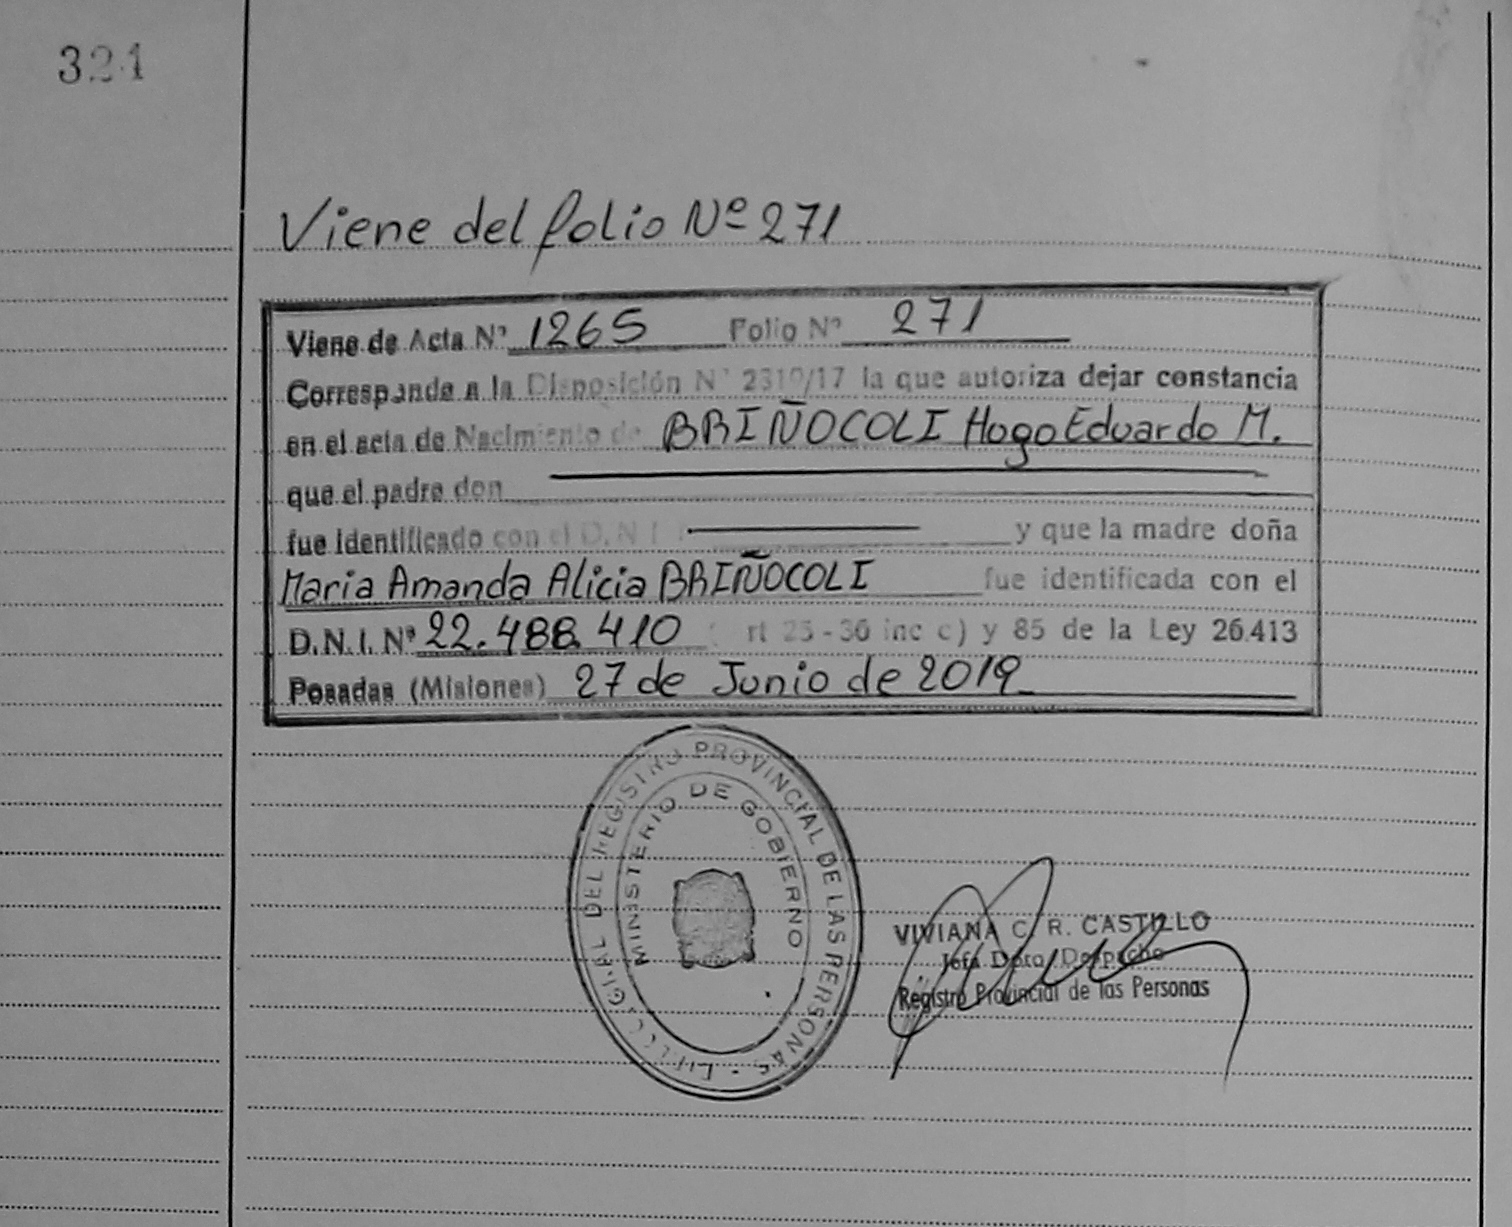 321
Viene del folio Nº 271
Viene de Acta Nº 1265 Folio Nº 271
Corresponde a la Disposición Nº 2310/17 la que autoriza dejar constancia
en el acta de Nacimiento de BRIÑOCOLI Hugo Eduardo M.
que el padre don
fue identificado con el D.N.I. y que la madre doña
Maria Amanda Alicia BRIÑOCOLI fue identificada con el
D.N.I. Nº 22.488.410 rt 25-36 inc c) y 85 de la Ley 26.413
Posadas (Misiones) 27 de Junio de 2019
DEL REGISTRO PROVINCIAL DE LAS PERSONAS
MINISTERIO DE GOBIERNO
VIVIANA C. R. CASTILLO
Jefa Dpto. Despacho
Registro Provincial de las Personas